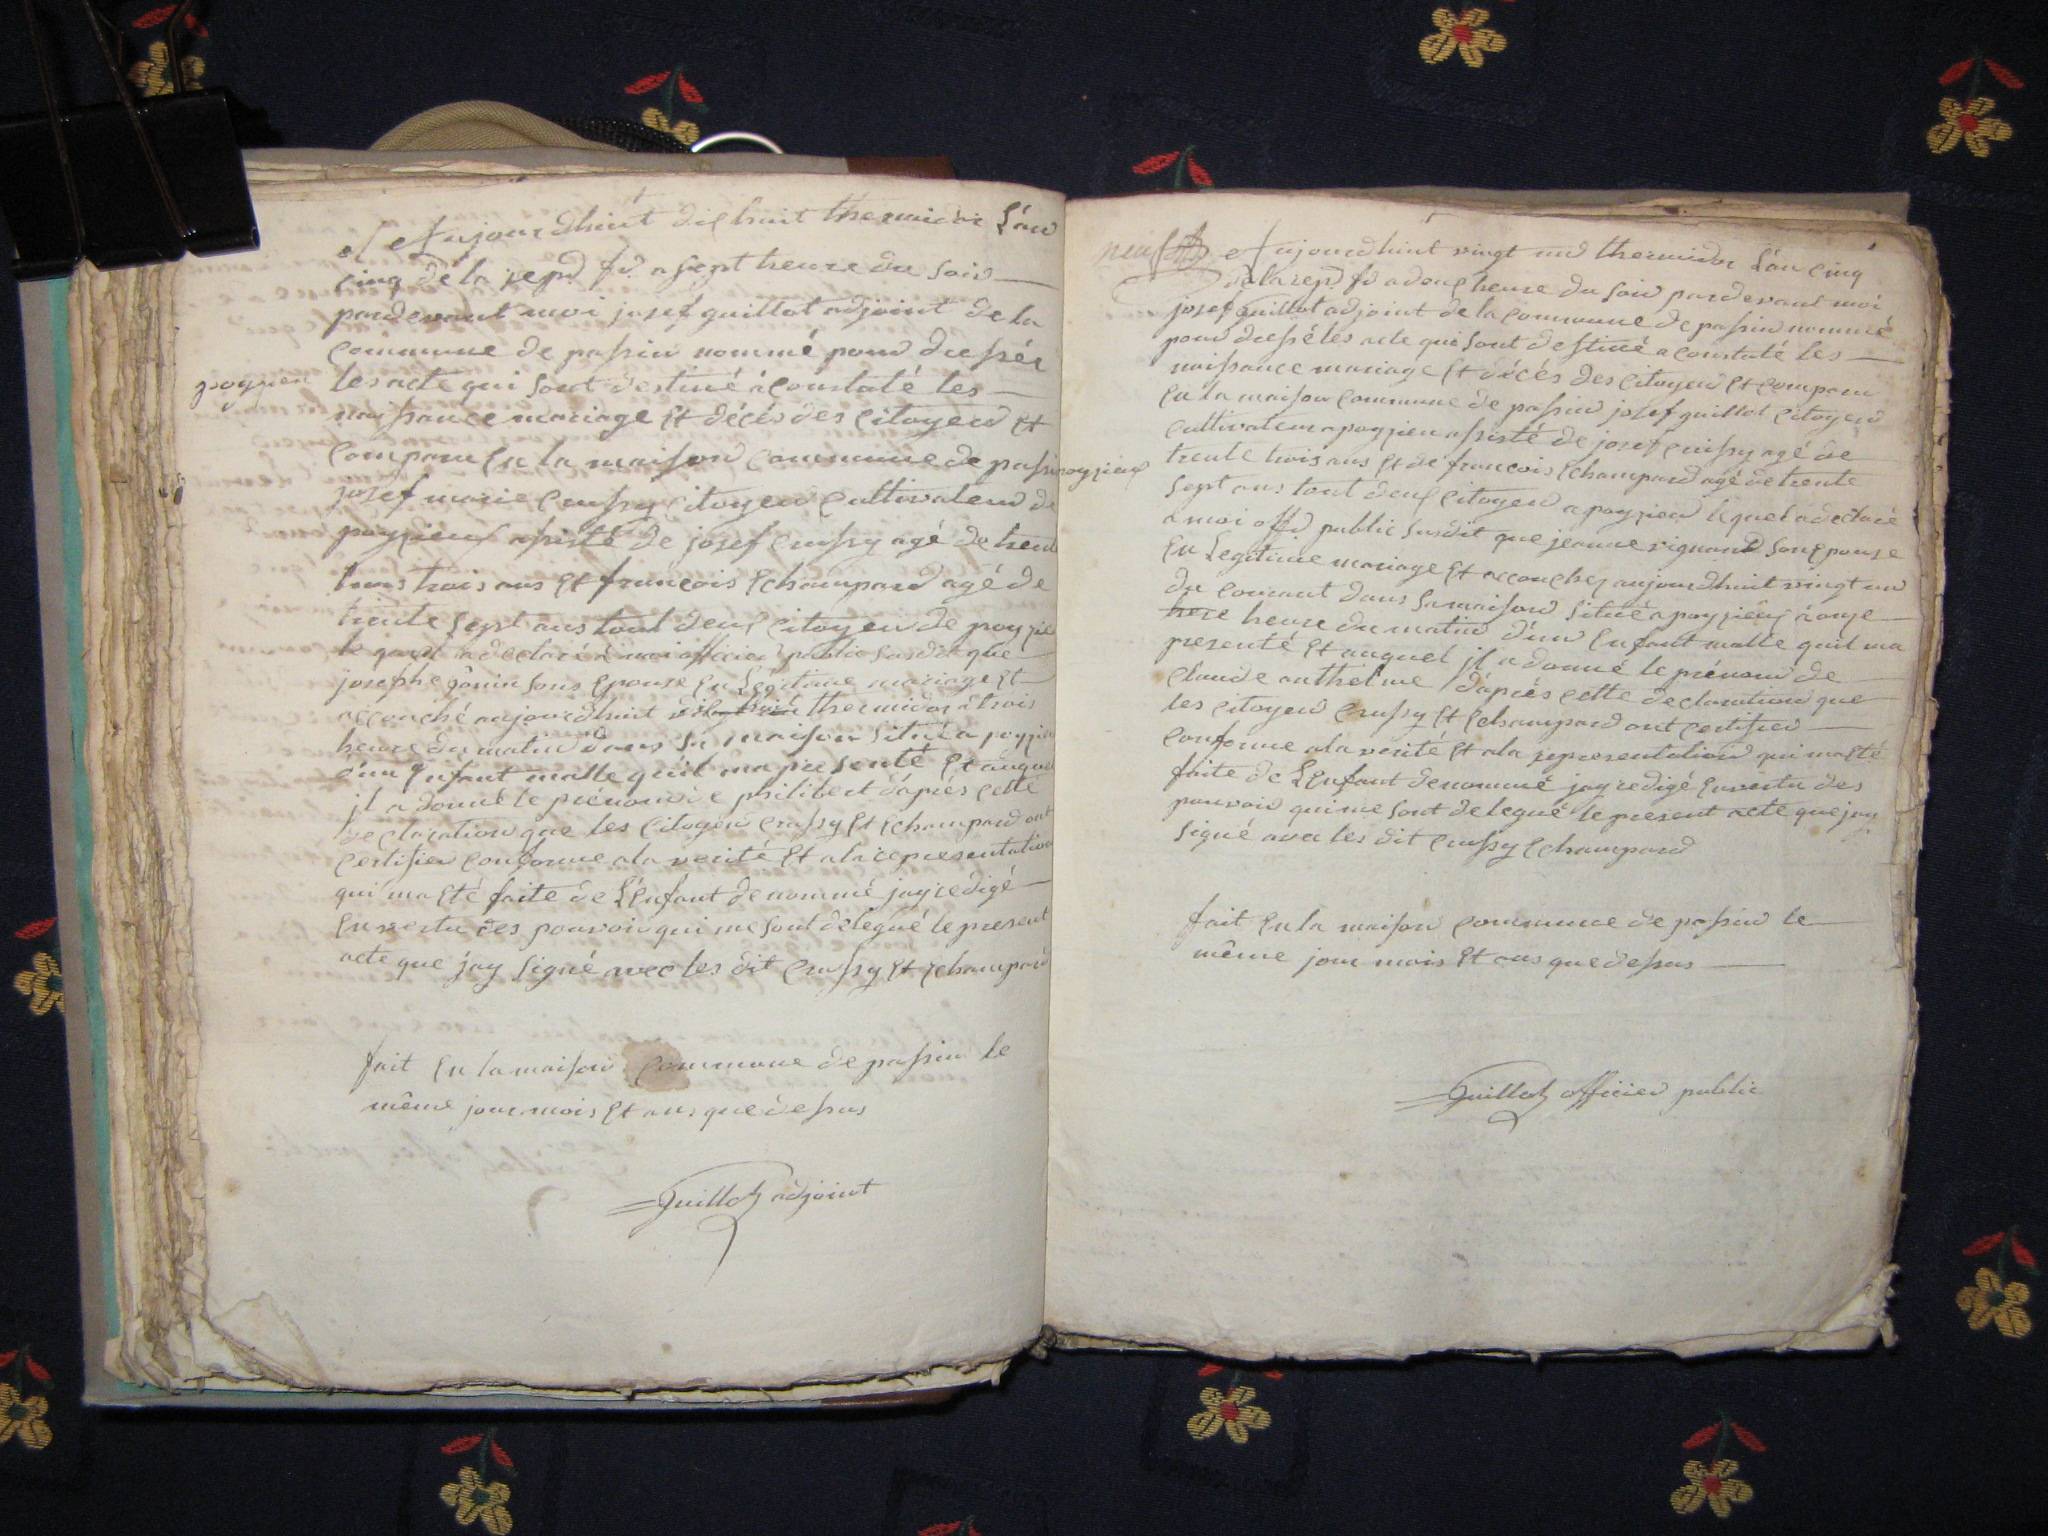 Aujourdhuit dix huit thermidor L'an
cinq de la rep. fr. a sept heure du soir
pardevant moi josef guillot adjoint de la
commune de passin nommé pour dressér
poyzieu
les acte qui sont destiné à constaté les
naissance mariage Et décés des citoyen Et
comparu En la maison commune de passin
josef marie crussy citoyen cultivateur de
poyzieux asisté de josef crussy agé de trente
trois ans Et francois Echampard agé de
trente sept ans tout deux citoyen de poyzieu
le quel a declaré à moi officier public susdit que
josephe gonin sons Epouse En Légitime mariage Et
accouché aujourdhuit dix huit thermidor à trois
heure du matin dans sa maison situé a poyzieu
d'un Enfant malle quil ma presenté Et auquel
jl a donné le prénom de philibert d'apres cette
declaration que les citoyen crussy Et Echampard ont
certifier conforme a la verité Et a la representation
qui ma Eté faite de L'Enfant denommé jay redigé
En vertu des pouvoir qui me sont délegué le present
acte que jay signé avec les dit crussy Et Echampard
fait En la maison commune de passin le
même jour mois Et ans que dessus
Guillot adjoint
Aujourdhuit vingt un thermidor L'an cinq
de la rep. fr. a deux heure du soir pardevant moi
josef guillot adjoint de la commune de passin nommé
pour dressé les acte qui sont destiné a constaté les
naissance mariage Et décés des citoyen Et comparu
En la maison commune de passin josef guillot citoyen
cultivateur a poyzieu assisté de josef crussy agé de
poyzieux
trente trois ans Et de francois Echampard agé de trente
sept ans tout deux citoyen a poyzieu lequel a déclaré
a moi off. public susdit que jeanne vignand son Epouse
En Legitime mariage Et accouchez aujourdhuit vingt un
du courant dans sa maison situé a poyzieu à onze
heure du matin d'un Enfant malle quil ma
presenté Et auquel jl a donné le prénom de
claude anthelme d'aprés cette declaration que
les citoyen crussy Et Echampard ont certifier
conforme a la verité Et a la representation qui ma Eté
faite de L'Enfant denommé jay redigé En vertu des
pouvoir qui me sont delegué le present acte que jay
signé avec les dit crussy Echampard
fait En la maison commune de passin le
même jour mois Et ans que dessus
Guillot officier public